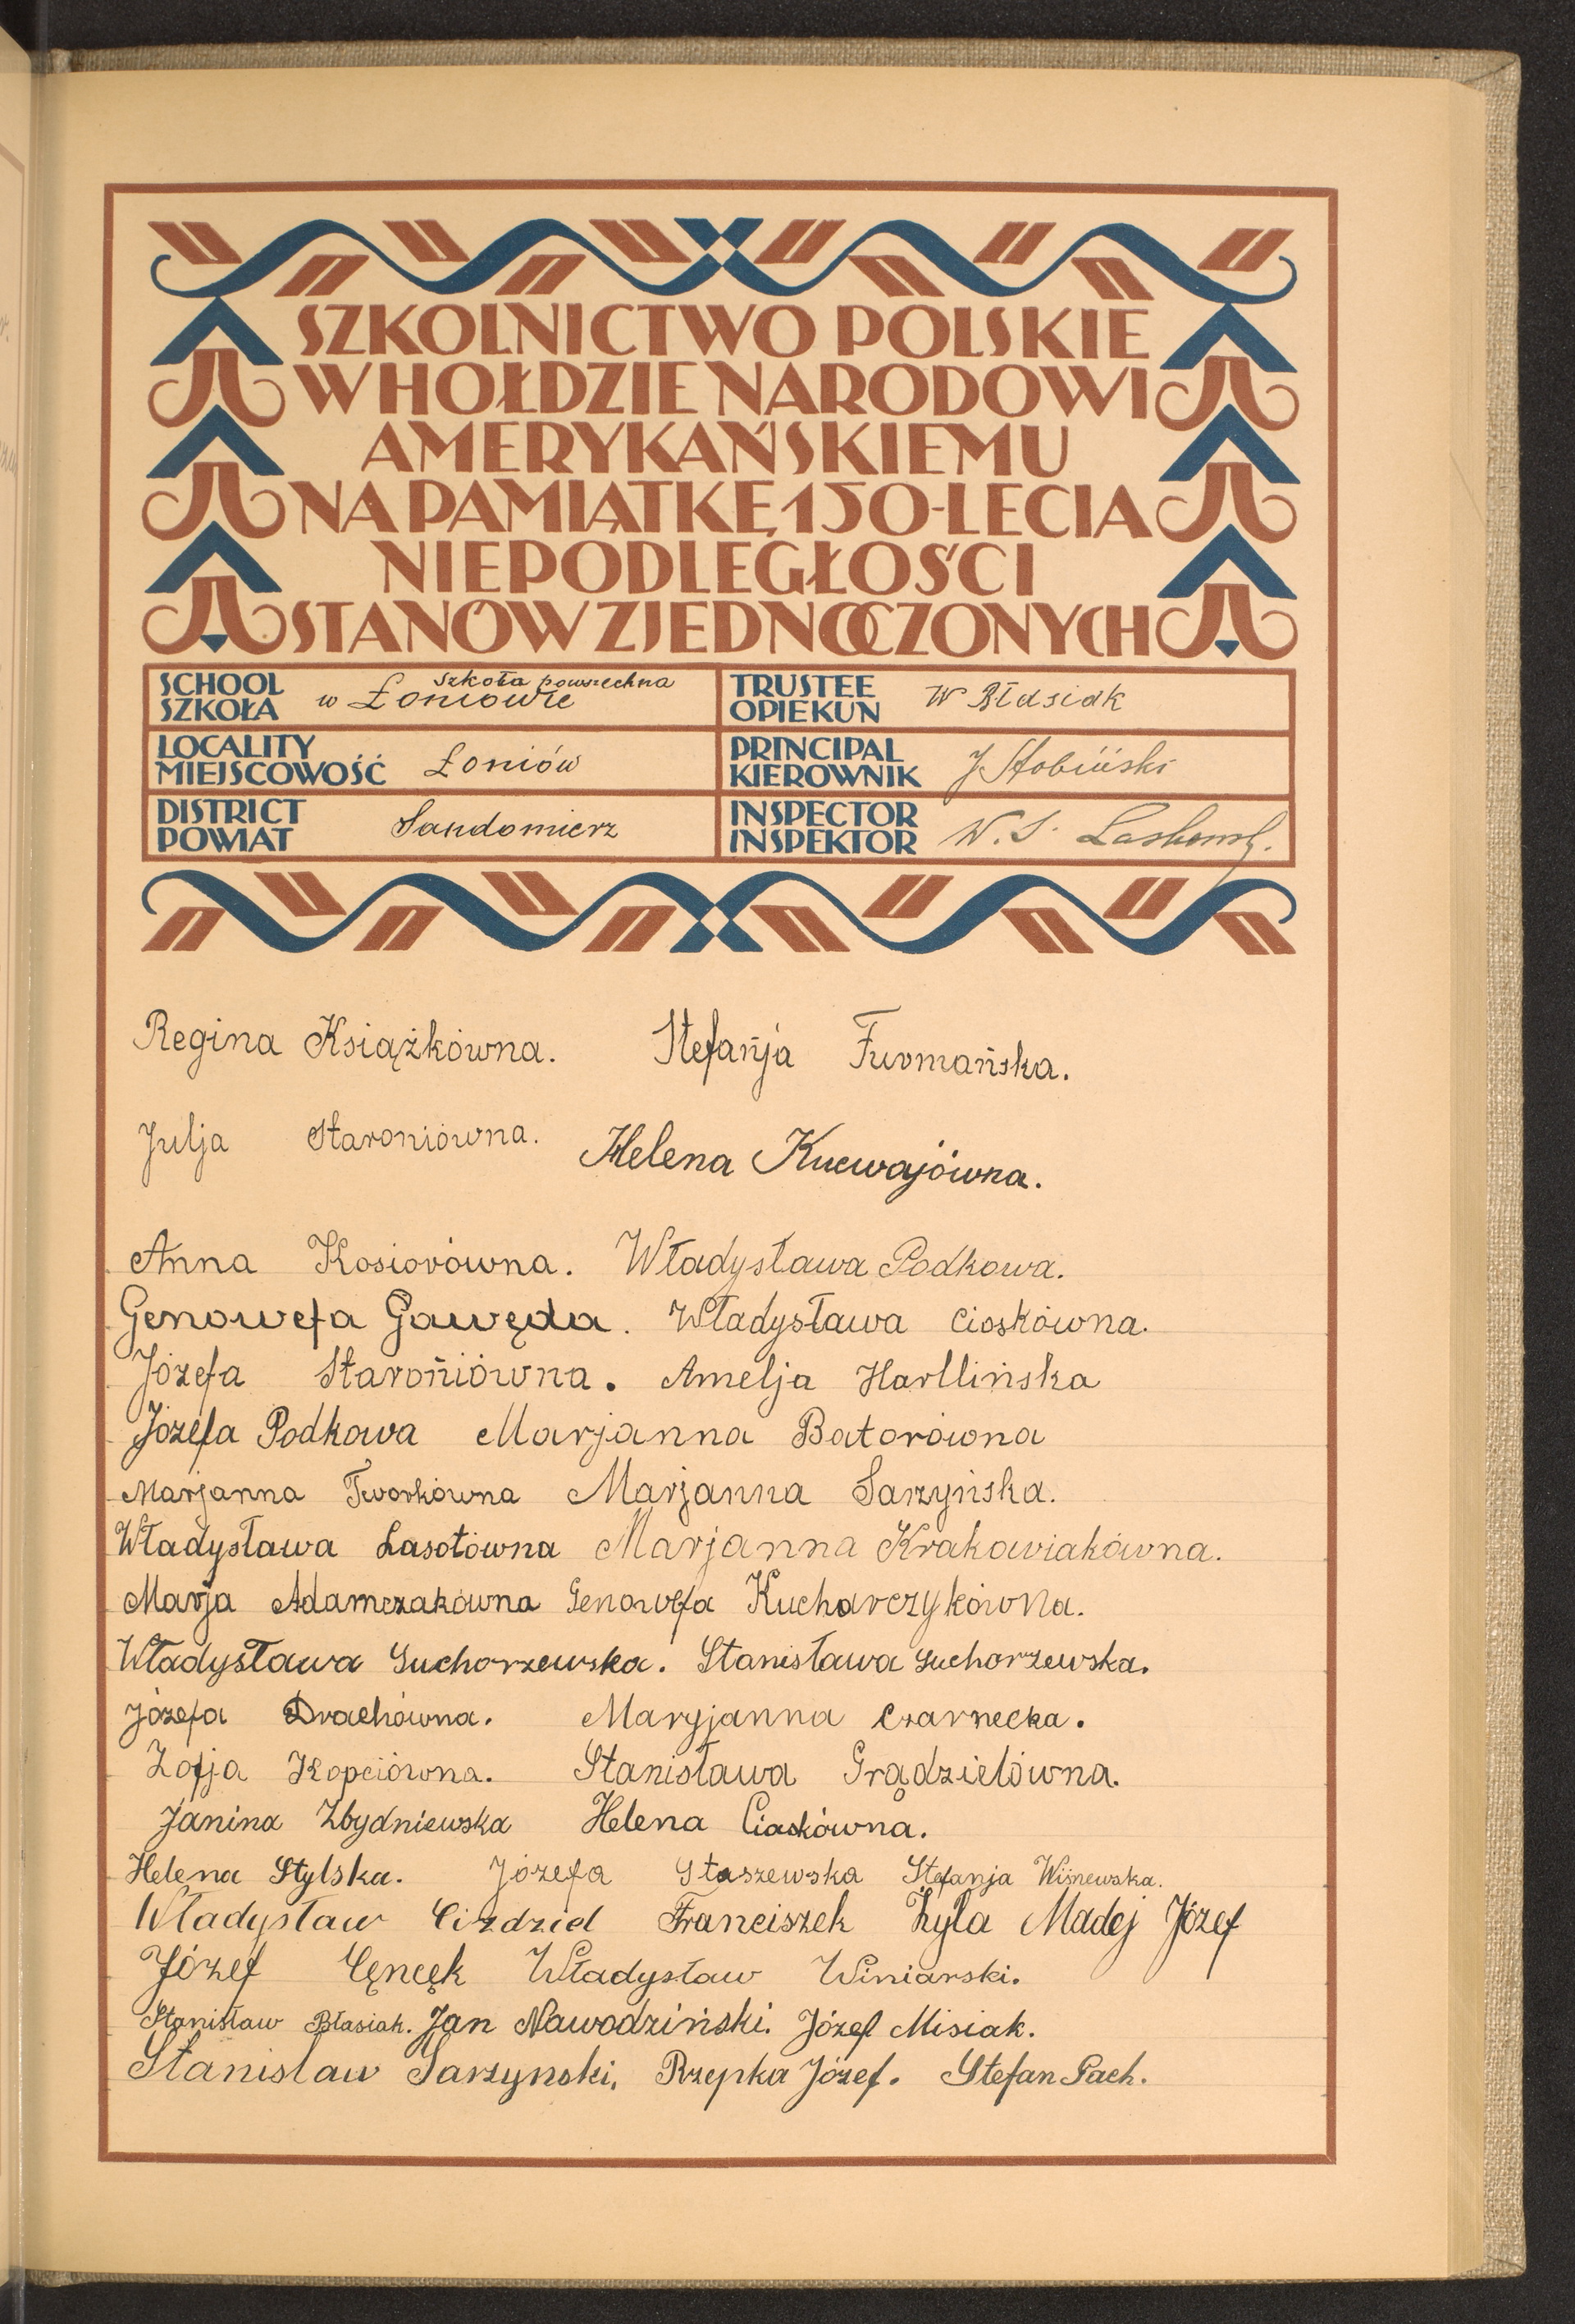 SZKOLNICTWO POLSKIE
W HOŁDZIE NARODOWI
AMERYKAŃSKIEMU
NA PAMIĄTKĘ 150-LECIA
NIEPODLEGŁOŚCI
STANÓW ZJEDNOCZONYCH
SCHOOL
SZKOŁA
Szkoła powszechna
w Łoniowie
TRUSTEE
OPIEKUN
W Błasiak
LOCALITY
MIEJSCOWOŚĆ
Łoniów
PRINCIPAL
KIEROWNIK
J. Słobiński
DISTRICT
POWIAT
Sandomierz
INSPECTOR
INSPEKTOR
W. S.
Regina Książkówna. Stefańja Furmańska.
Julja Staroniówna. Helena Kucwajówna.
Anna Kosiorówna. Władysława Podkowa.
Genowefa Gawęda. Władysława Cioskówna.
Józefa Starońiówna. Amelja Harllińska
Józefa Podkowa Marjanna Batorówna
Marjanna Tworkówna Marjanna Sarzyńska.
Władysława Lasotówna Marjanna Krakowiakówna.
Marja Adamczakówna Genowefa Kucharczykówna.
Władysława Suchorzewska. Stanisława Suchorzewska.
Józefa Drachówna. Maryjanna Czarnecka.
Zofja Kopciówna. Stanisława Grądzielówna.
Janina Zbydniewska Helena Ciaskówna.
Helena Stylska. Józefa Staszewska Stefanja Wiśnewska.
Władysław Ciździel Franciszek Żyla Madej Józef
Józef Cęncęk Władysław Winiarski.
Stanisław Błasiak. Jan Nawodziński. Józef Misiak.
Stanislaw Sarzynski, Rzepka Józef. Stefan Pach.